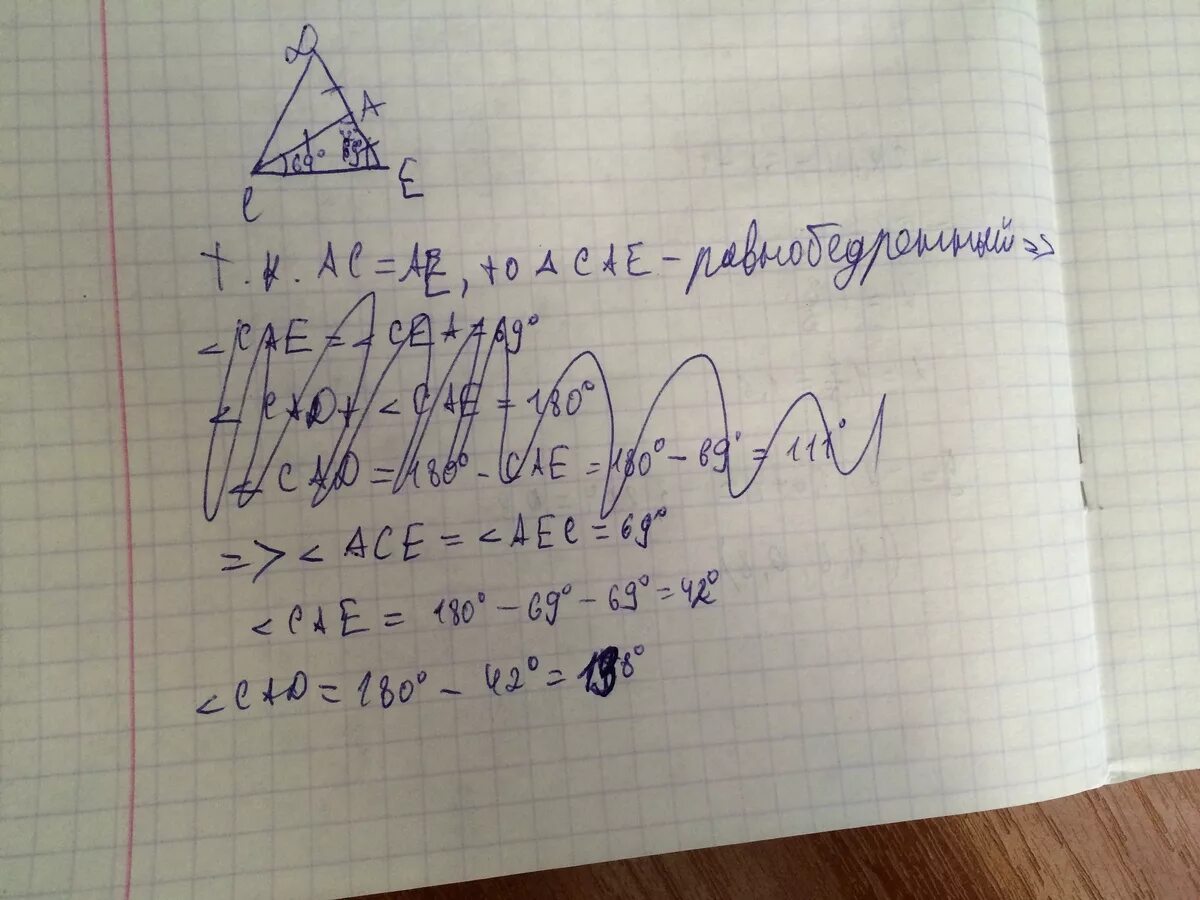 D
A
69° 69°
C
E
т.к. AC = AE, то △CAE – равнобедренный =>
< CAE = < CEA = 69°
< CAD + < CAE = 180°
< CAD = 180° - CAE = 180° - 69° = 111°
=> < ACE = < AEC = 69°
< CAE = 180° - 69° - 69° = 42°
< CAD = 180° - 42° = 138°